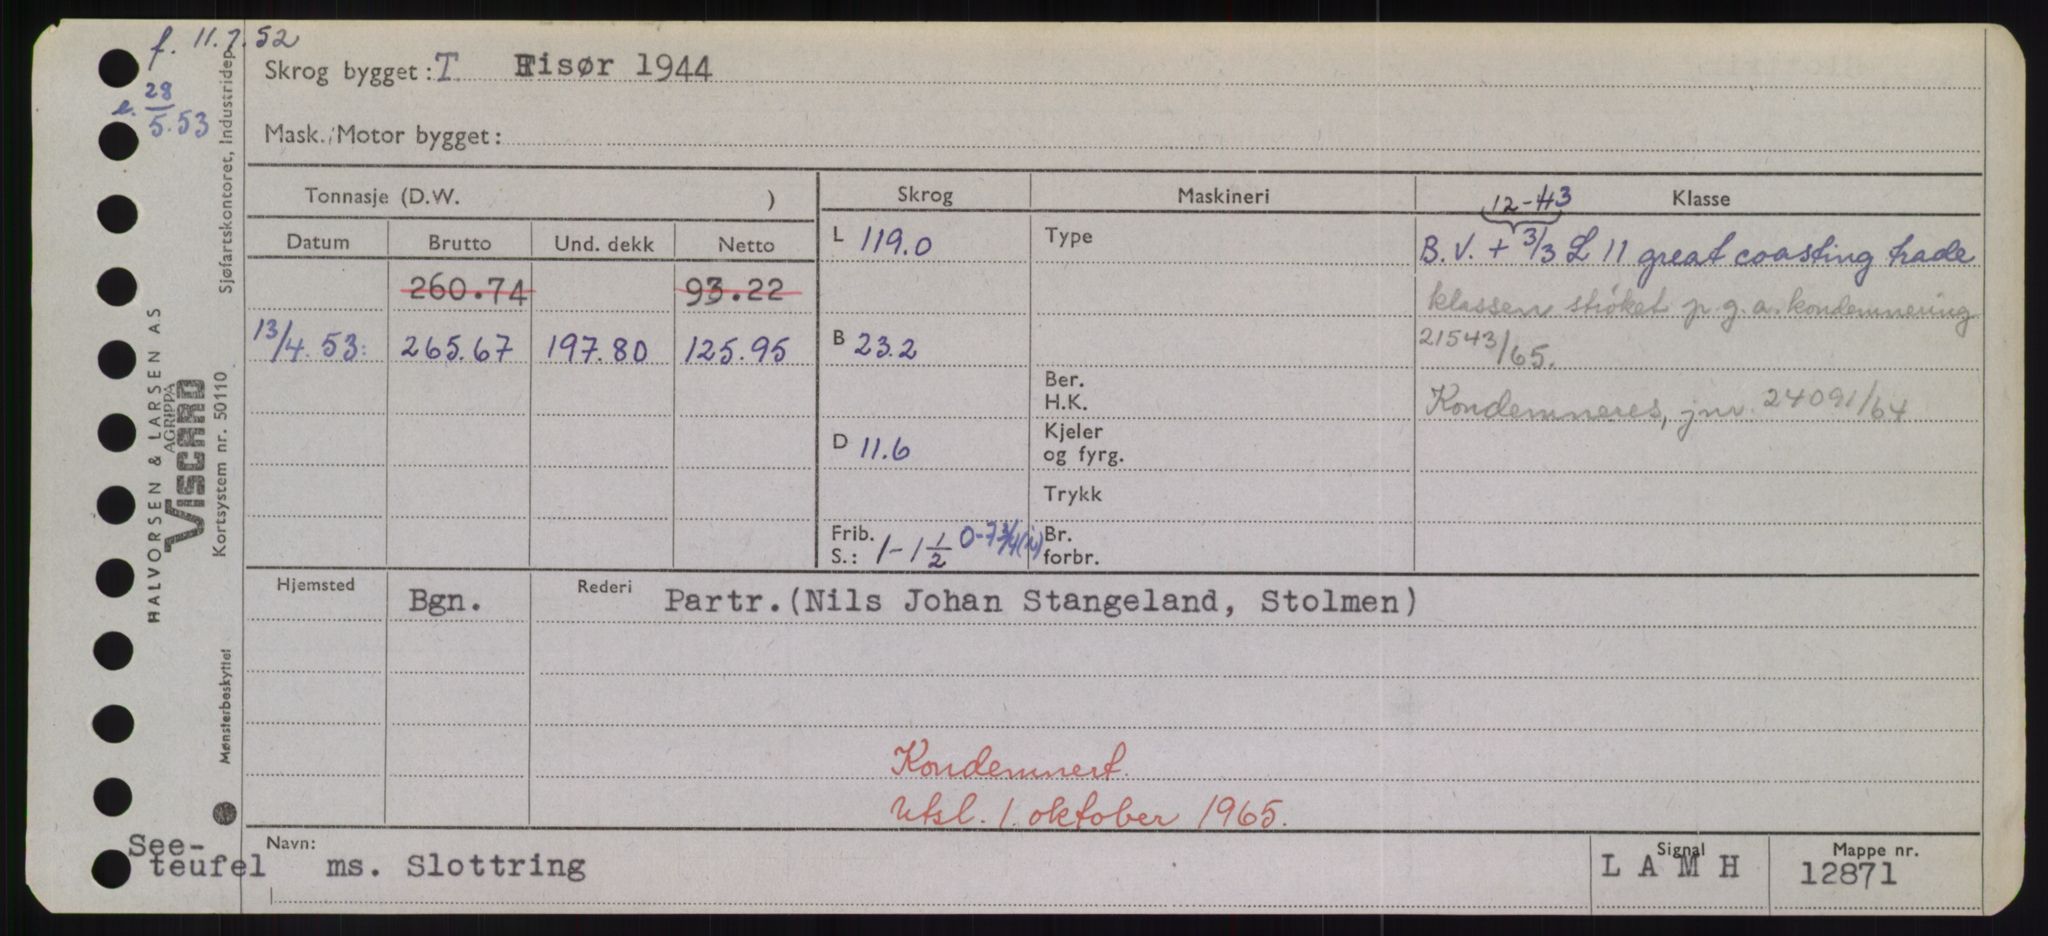 f. 11.7.52
e. 28/5.53
Skrog bygget: T Risør 1944
Mask./Motor bygget:
Tonnasje (D.W. )
Skrog
Maskineri
Klasse
Datum
Brutto
Und. dekk
Netto
260.74
93.22
13/4.53:
265.67
197.80
125.95
L 119.0
B 23.2
D 11.6
Frib. S.: 1-1 1/2 0-7 3/4
Type
Ber. H.K.
Kjeler og fyrg.
Trykk
Br. forbr.
12-43
B.V. + 3/3 L 11 great coasting trade
klassen strøket p.g.a. kondemnering
21543/65.
Kondemneres, jnr. 24091/64
Hjemsted
Bgn.
Rederi
Partr.(Nils Johan Stangeland, Stolmen)
Kondemnert.
Utsl. 1. oktober 1965.
See-
teufel
Navn:
ms. Slottring
Signal
L A M H
Mappe nr.
12871
Sjøfartskontoret, Industridep.
HALVORSEN & LARSEN AS
AGRIPPA
VISCARD
Kortsystem nr. 50110
Mønsterbeskyttet